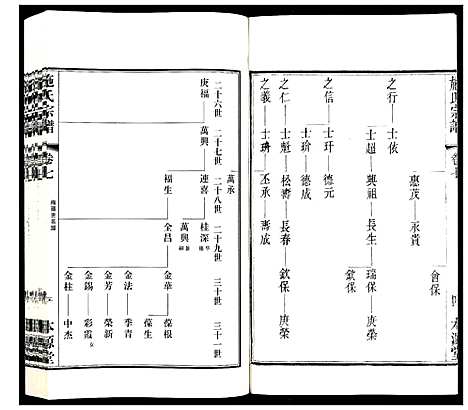 施氏宗譜
卷七
本源堂
之行 士依
惠茂 永貴
會保
士超 興祖 長生 瑞保 庚榮
欽保
之信 士玕 德元
士瑜 德成
之仁 士魁 松壽 長春 欽保 庚榮
之義 士琦 丕承 壽成
二十六世
二十七世
二十八世
二十九世
三十世
三十一世
庚福 萬興 連喜 桂深
萬承
萬興
福生 全昌 金華 葆根
葆生
金法 季青
金芳 榮新
金錫 彩霞 女
金柱 中杰
施氏宗譜
卷七
本源堂